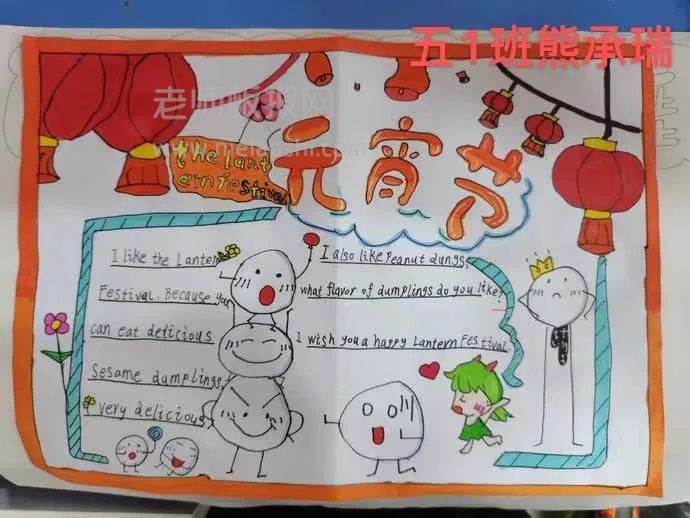 五1班熊承瑞
老师板报网
www.meiaoshi.com
the lant
ern festival
元宵节
I like the Lantern
Festival. Because you
can eat delicious
Sesame dumplings
very delicious
I also like Peanut dungs,
what flavor of dumplings do you like?
I wish you a happy Lantern Festival.